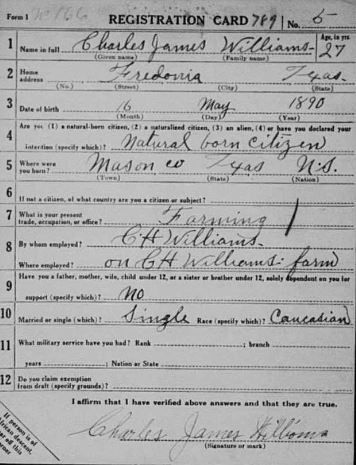 Form 1 REGISTRATION CARD 789 No. 5
1 Name in full Charles James Williams Age, in yrs. 27
(Given name) (Family name)
2 Home address Fredonia Texas
(No.) (Street) (City) (State)
3 Date of birth 16 May 1890
(Month) (Day) (Year)
4 Are you (1) a natural-born citizen, (2) a naturalized citizen, (3) an alien, (4) or have you declared your
intention (specify which)? Natural born citizen
5 Where were you born? Mason co Texas U.S.
(Town) (State) (Nation)
6 If not a citizen, of what country are you a citizen or subject?
7 What is your present trade, occupation, or office? Farming
8 By whom employed? C H Williams
Where employed? on C H Williams farm
9 Have you a father, mother, wife, child under 12, or a sister or brother under 12, solely dependent on you for
support (specify which)? No
10 Married or single (which)? Single Race (specify which)? Caucasian
11 What military service have you had? Rank ; branch
years ; Nation or State
12 Do you claim exemption from draft (specify grounds)?
I affirm that I have verified above answers and that they are true.
Charles James Williams
(Signature or mark)
If person is of